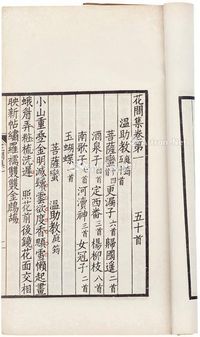 花間集卷第一　五十首
溫助教庭筠五十首
菩薩蠻十四首　更漏子六首　歸國遙二首
酒泉子四首　定西番三首　楊柳枝八首
南歌子七首　河瀆神三首　女冠子二首
玉蝴蝶一首
菩薩蠻　溫助教庭筠
小山重疊金明滅鬢雲欲度香顋雪懶起畫
蛾眉弄粧梳洗遲　照花前後鏡花面交相
映新帖繡羅襦雙雙金鷓鴣